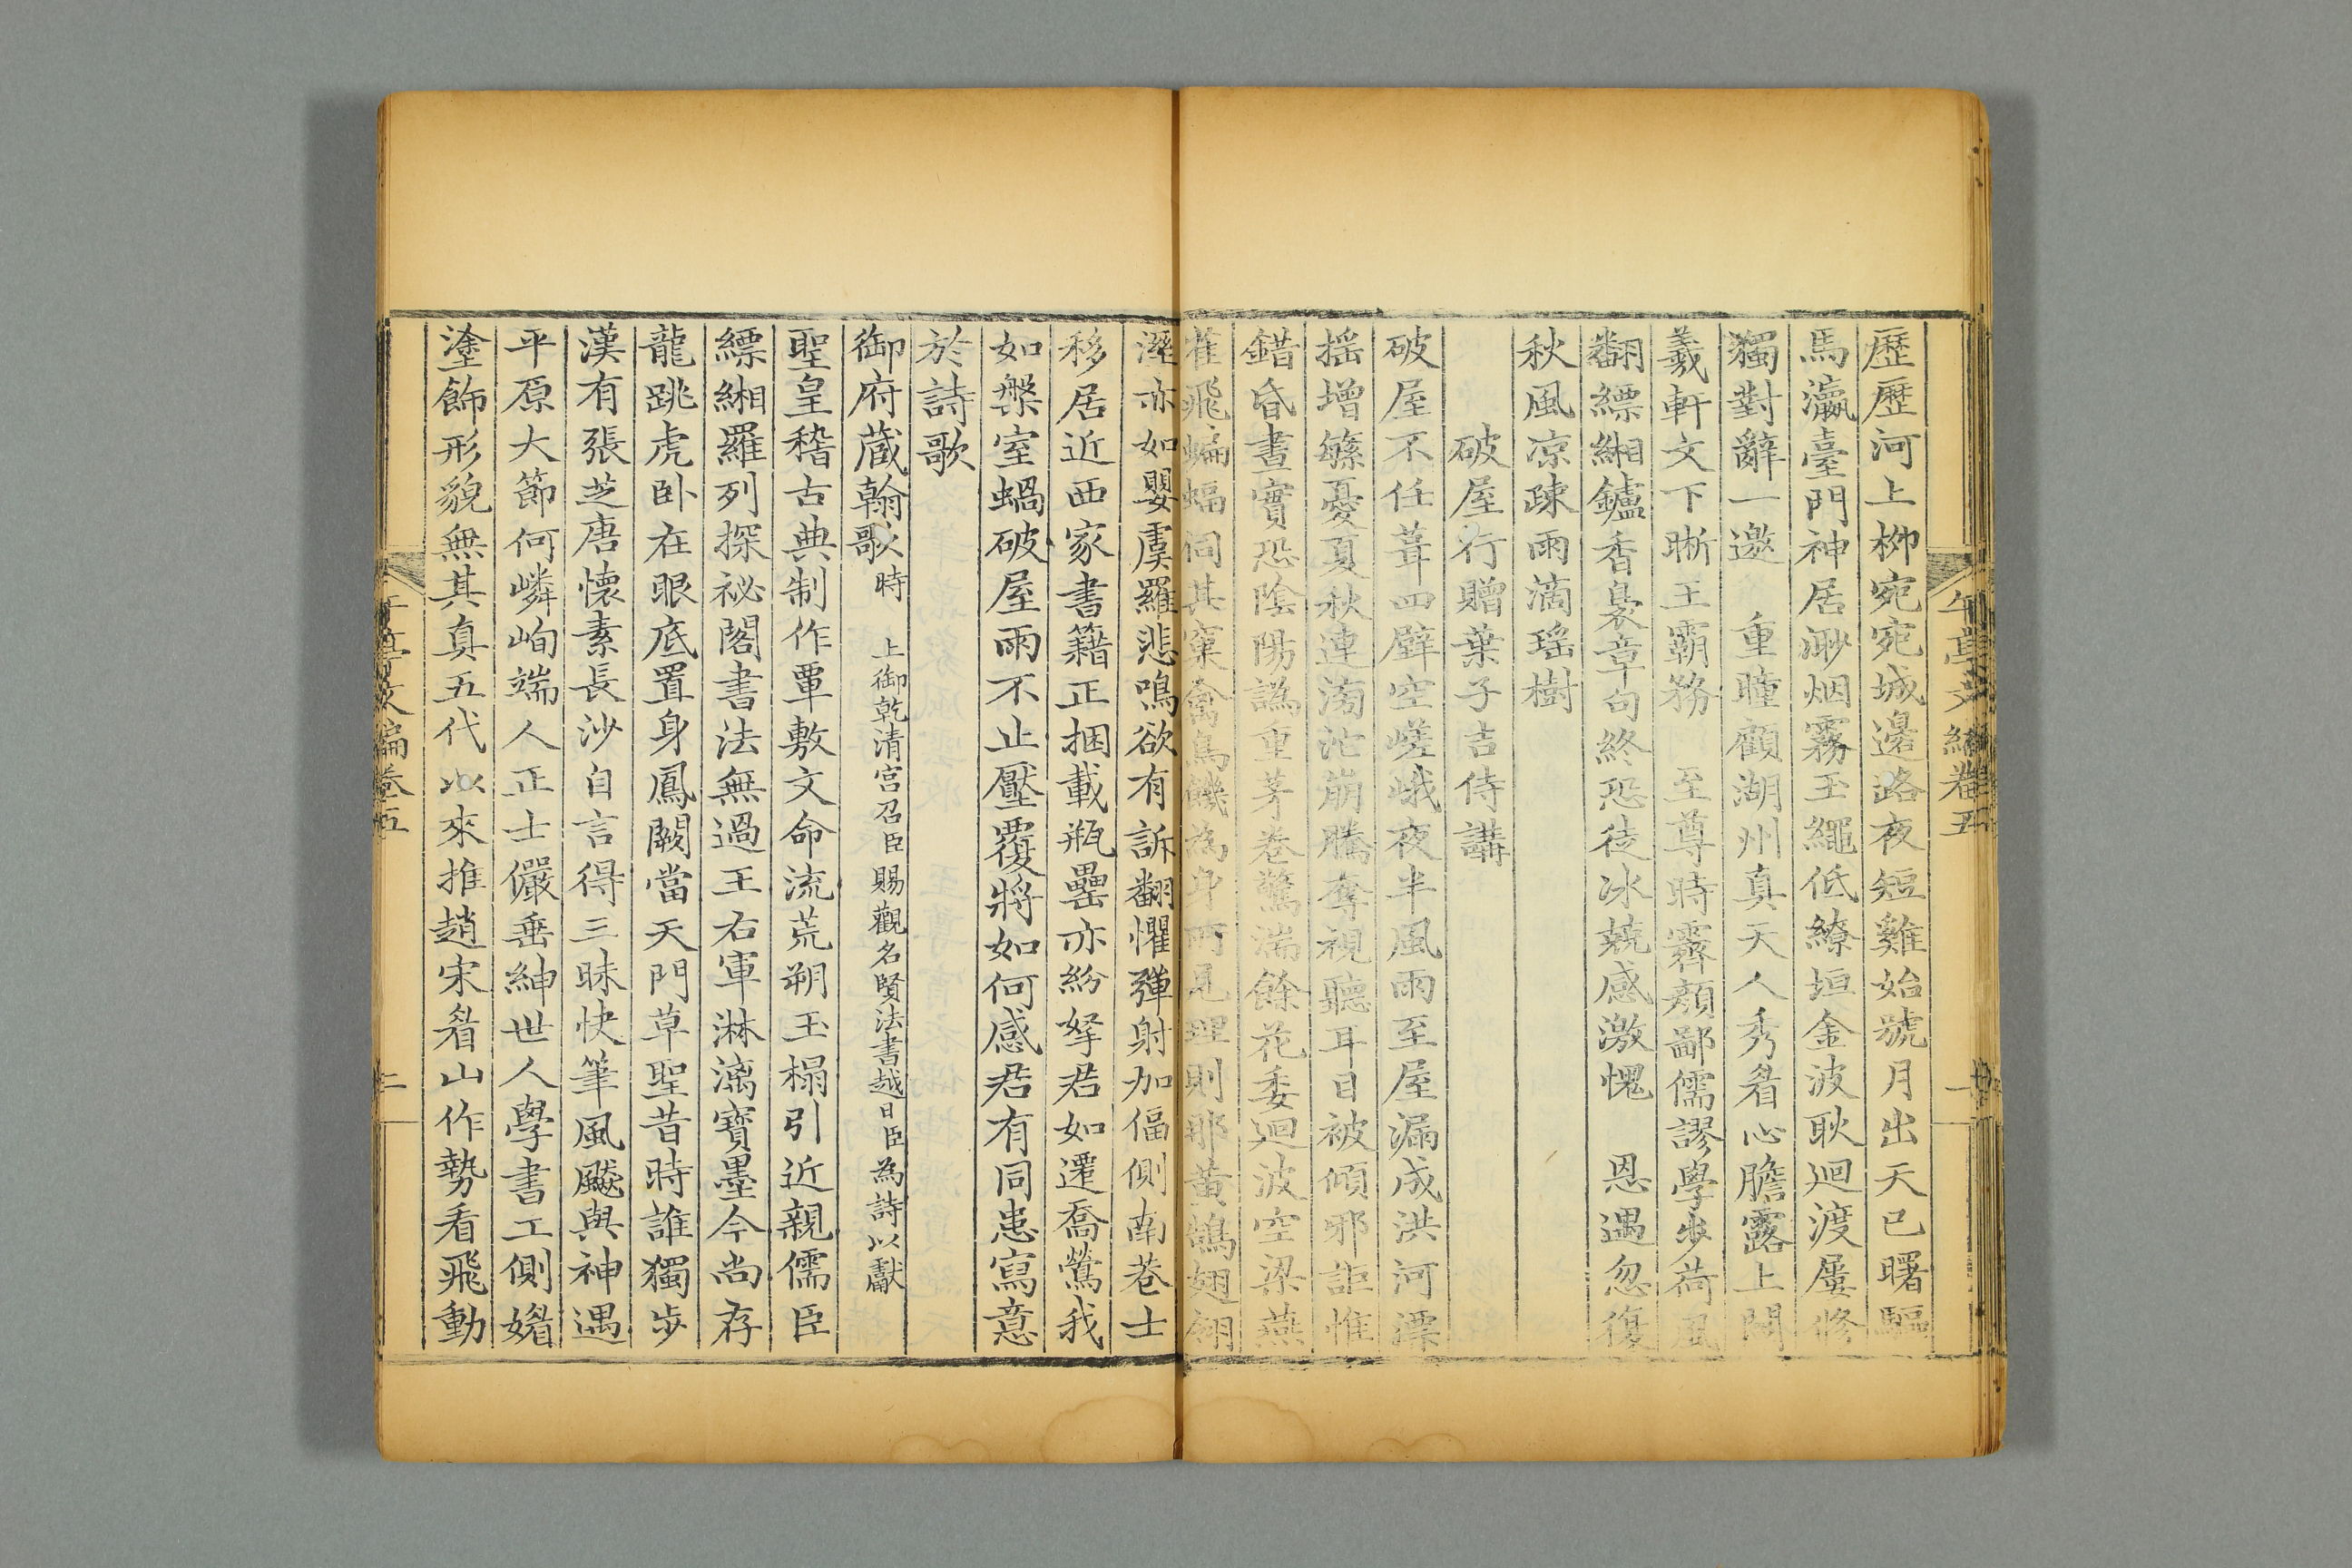 午亭文編卷五
歷歷河上栁宛宛城邊路夜短雞始號月出天已曙驅
馬瀛臺門神居渺烟霧玉繩低繚垣金波耿迴渡屢修
獨對辭一邀　重瞳顧湖州真天人秀眉心膽露上閣
羲軒文下晣王霸務　至尊時霽顏鄙儒謬學步荷風
翻縹緗鑪香裊章句終恐徒冰兢感激愧　恩遇忽復
秋風凉疎雨滴瑶樹
破屋行贈葉子吉侍講
破屋不任葺四壁空嵯峨夜半風雨至屋漏成洪河漂
摇增繇憂夏秋連滂沱崩騰奪視聽耳目被傾邪詎惟
錯昏晝實恐陰陽譌重茅卷驚湍餘花委迴波空梁燕
雀飛蝙蝠伺其窠禽鳥饑為身所見理則那黄鵠翅翎
溼亦如嬰虞羅悲鳴欲有訴翻懼彈射加偪側南巷士
移居近西家書籍正捆載瓶罍亦紛拏君如遷喬鶯我
如槃室蝸破屋雨不止壓覆將如何感君有同患寫意
於詩歌
御府蔵翰歌時　上御乾清宮召臣賜觀名賢法書越日臣為詩以獻
聖皇稽古典制作覃敷文命流荒朔玉榻引近親儒臣
縹緗羅列探祕閣書法無過王右軍淋漓寶墨今尚存
龍跳虎卧在眼底置身鳳闕當天門草聖昔時誰獨步
漢有張芝唐懷素長沙自言得三昧快筆風飈與神遇
平原大節何嶙峋端人正士儼垂紳世人學書工側媚
塗飾形貌無其真五代以來推趙宋眉山作勢看飛動
午亭文編卷五
二